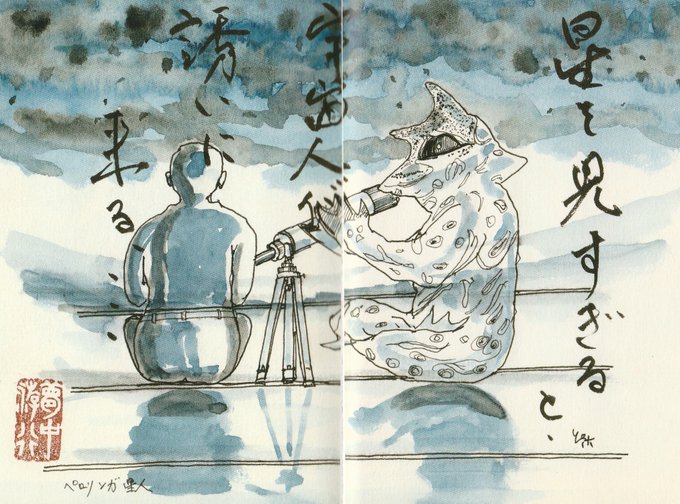 星を見すぎると、
宇宙人が
誘いに
来る…
夢中
遊行
ペロリンガ星人